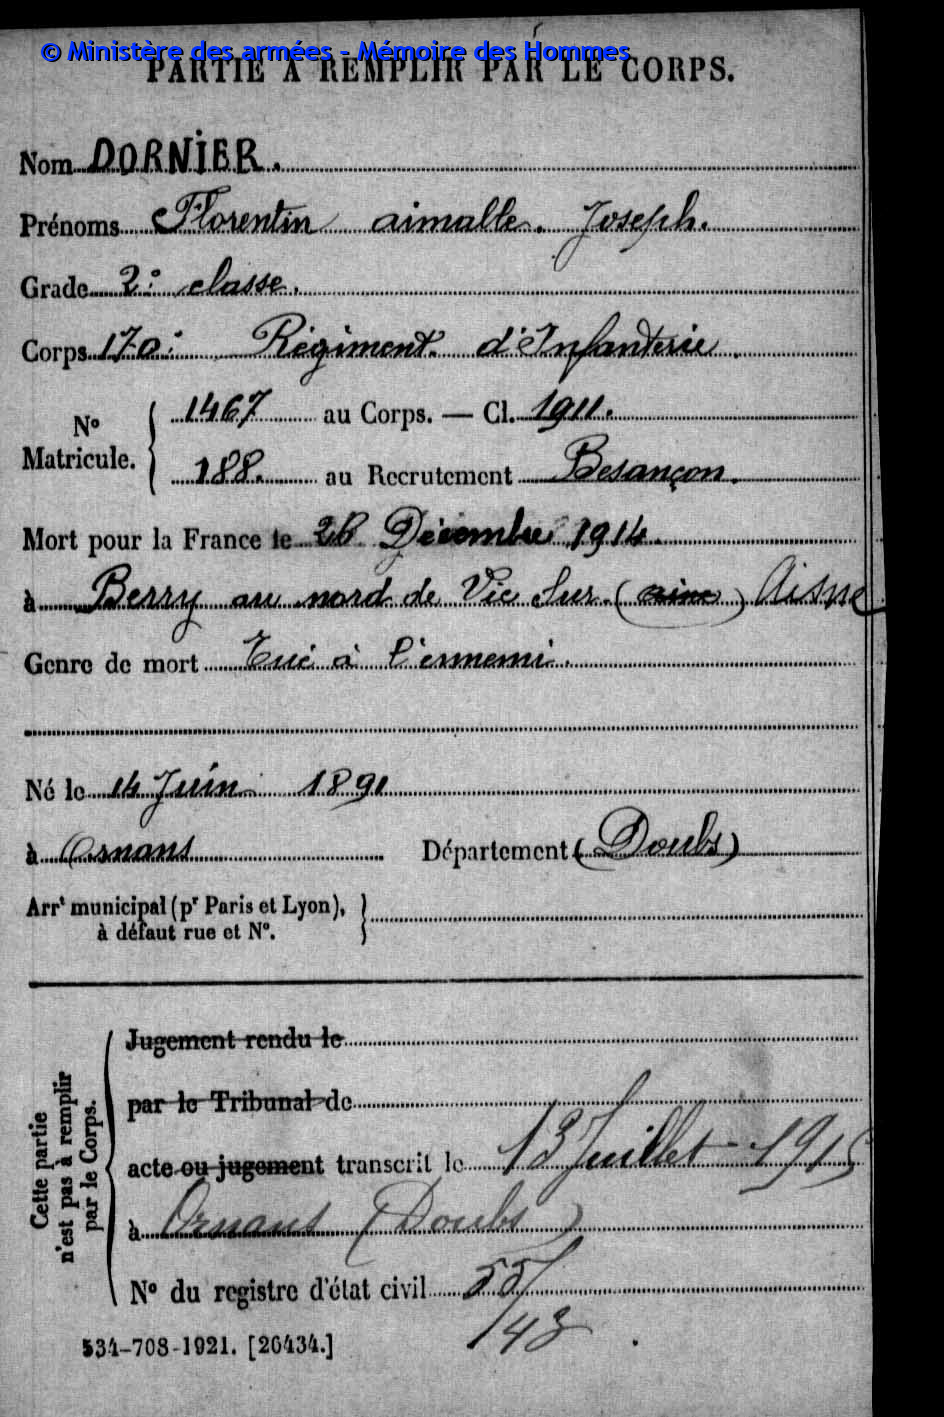 © Ministère des armées - Mémoire des Hommes
PARTIE À REMPLIR PAR LE CORPS.
Nom DORNIER.
Prénoms Florentin aimable. Joseph.
Grade 2e classe.
Corps 170e Régiment d'Infanterie.
N° Matricule. { 1467 au Corps. — Cl. 1911.
188. au Recrutement Besançon.
Mort pour la France le 28 Décembre 1914.
à Berry au nord de Vic sur (aine) Aisne
Genre de mort Tué à l'ennemi.
Né le 14 Juin 1891
à Ornans Département (Doubs)
Arrt municipal (pr Paris et Lyon),
à défaut rue et N°.
Cette partie
n'est pas à remplir
par le Corps.
Jugement rendu le
par le Tribunal de
acte ou jugement transcrit le 13 Juillet 1915
à Ornans (Doubs)
N° du registre d'état civil 55/
143
534-708-1921. [26434.]